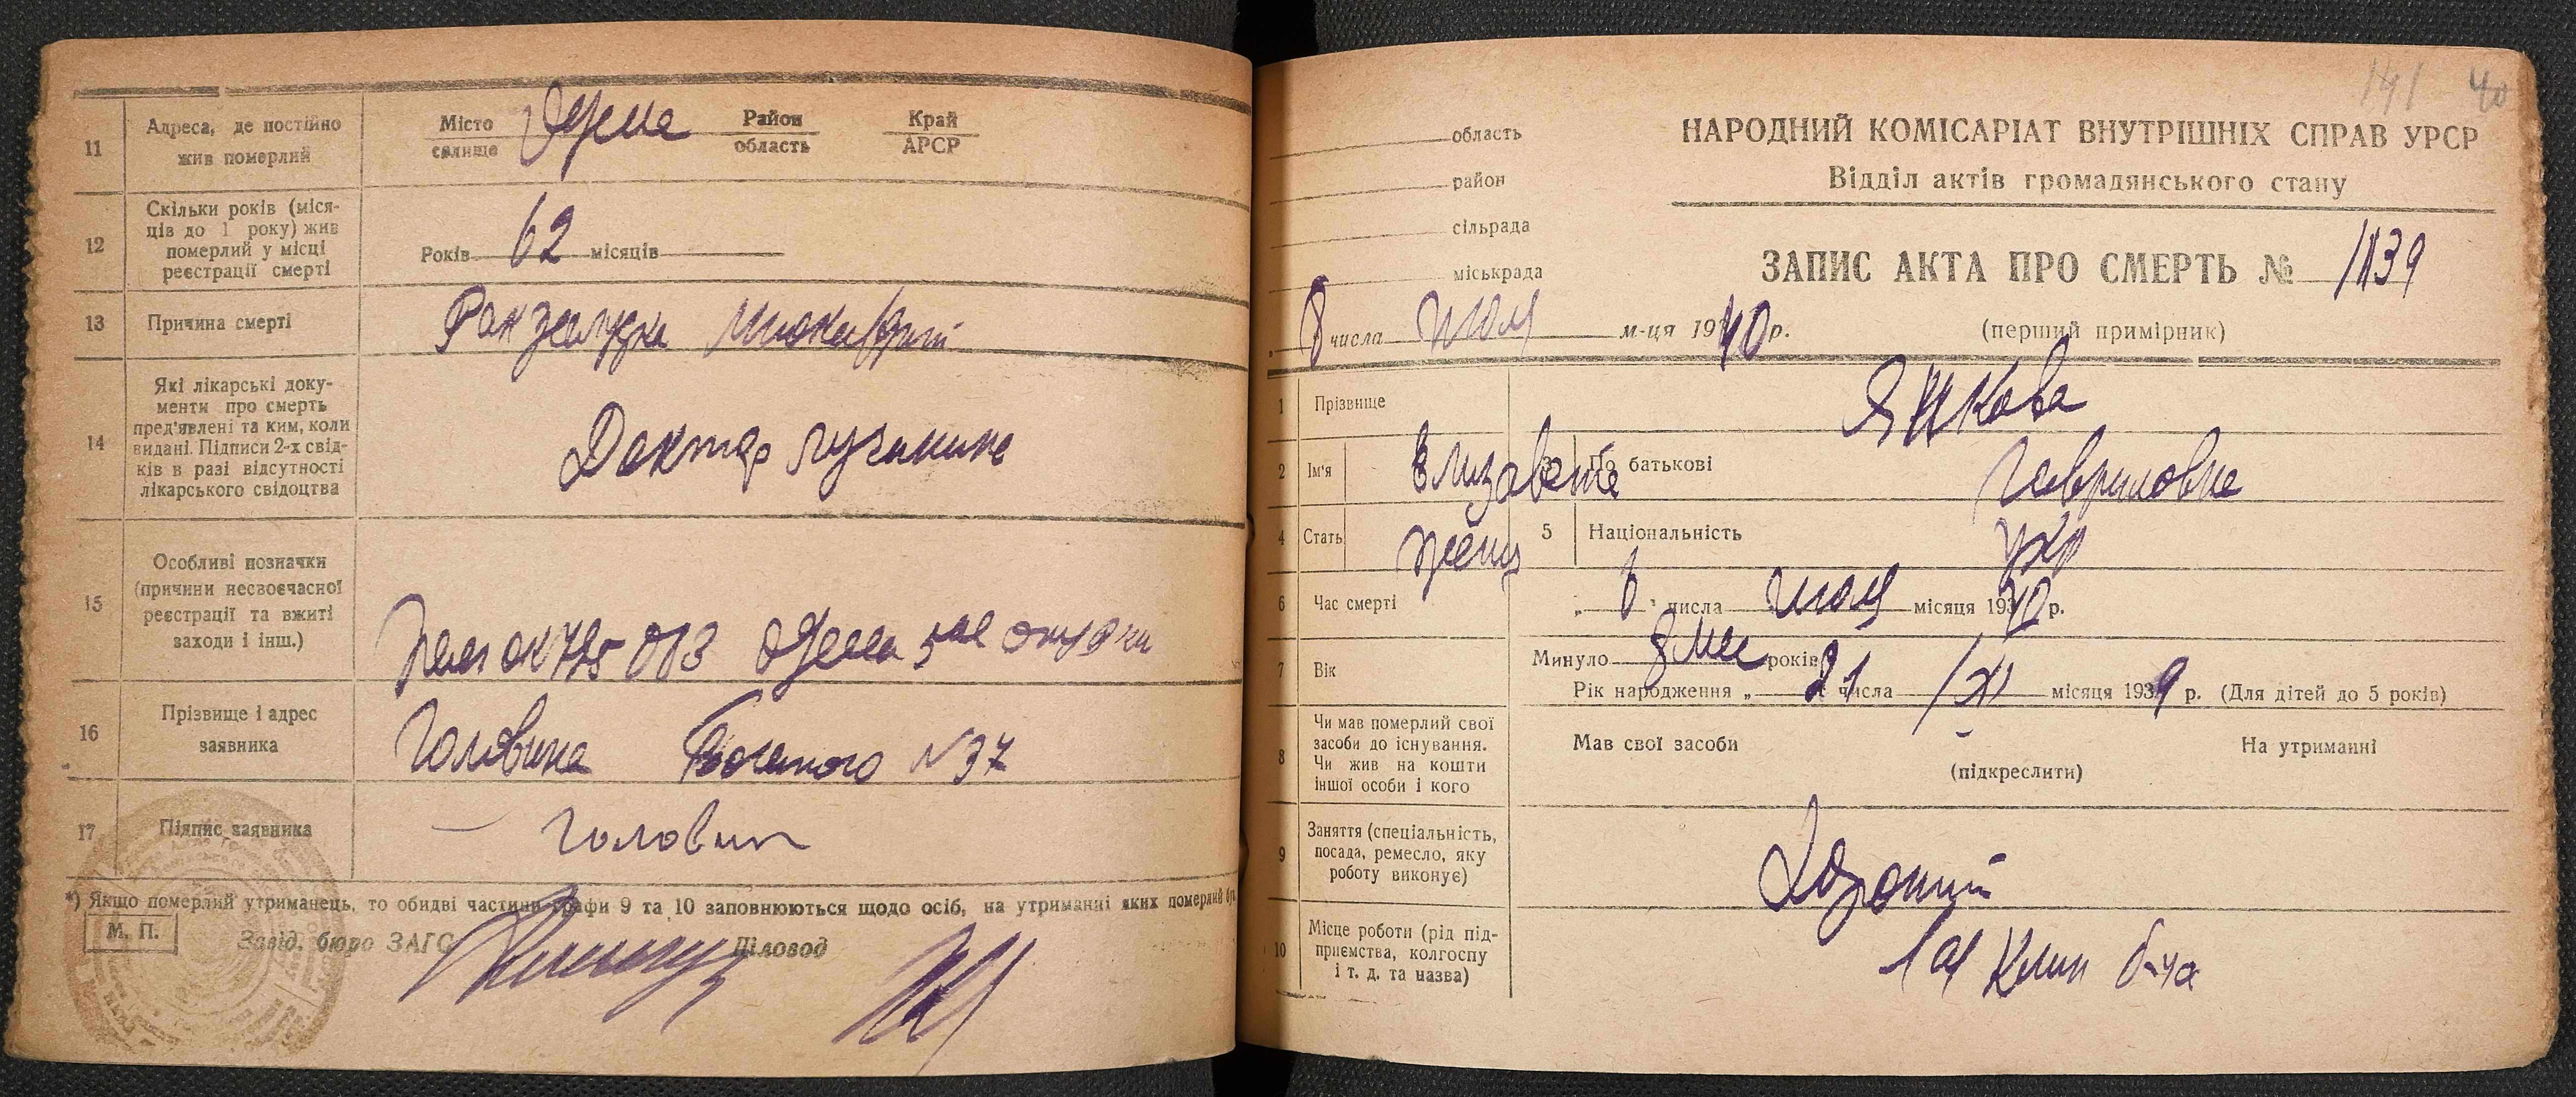 11
Адреса, де постійно
жив померлий
Місто
селище
Район
область
Край
АРСР
12
Скільки років (міся-
ців до 1 року) жив
померлий у місці
реєстрації смерті
Років 62 місяців
13
Причина смерті
Рак желудка
14
Які лікарські доку-
менти про смерть
пред'явлені та ким, коли
видані. Підписи 2-х свід-
ків в разі відсутності
лікарського свідоцтва
Доктор
15
Особливі позначки
(причини несвоєчасної
реєстрації та вжиті
заходи і інш.)
16
Прізвище і адрес
заявника
Головина Богатого N 37
17
Підпис заявника
Головин
*) Якщо померлий утриманець, то обидві частини графи 9 та 10 заповнюються щодо осіб, на утриманні яких померлий був
М. П.
Завід. бюро ЗАГС
Діловод
141 40
область
район
сільрада
міськрада
8 числа июля м-ця 1940 р.
НАРОДНИЙ КОМІСАРІАТ ВНУТРІШНІХ СПРАВ УРСР
Відділ актів громадянського стану
ЗАПИС АКТА ПРО СМЕРТЬ № 1139
(перший примірник)
1
Прізвище
Янкова
2
Ім'я
Елизавета
3
По батькові
Гавриловна
4
Стать
женщ
5
Національність
укр
6
Час смерті
числа июля місяця 1940 р.
7
Вік
Минуло 8 мес років
Рік народження „ 21 числа /XI місяця 1939 р. (Для дітей до 5 років)
8
Чи мав померлий свої
засоби до існування.
Чи жив на кошти
іншої особи і кого
Мав свої засоби
На утриманні
(підкреслити)
9
Заняття (спеціальність,
посада, ремесло, яку
роботу виконує)
10
Місце роботи (рід під-
приємства, колгоспу
і т. д. та назва)
1ая Клин б-ца